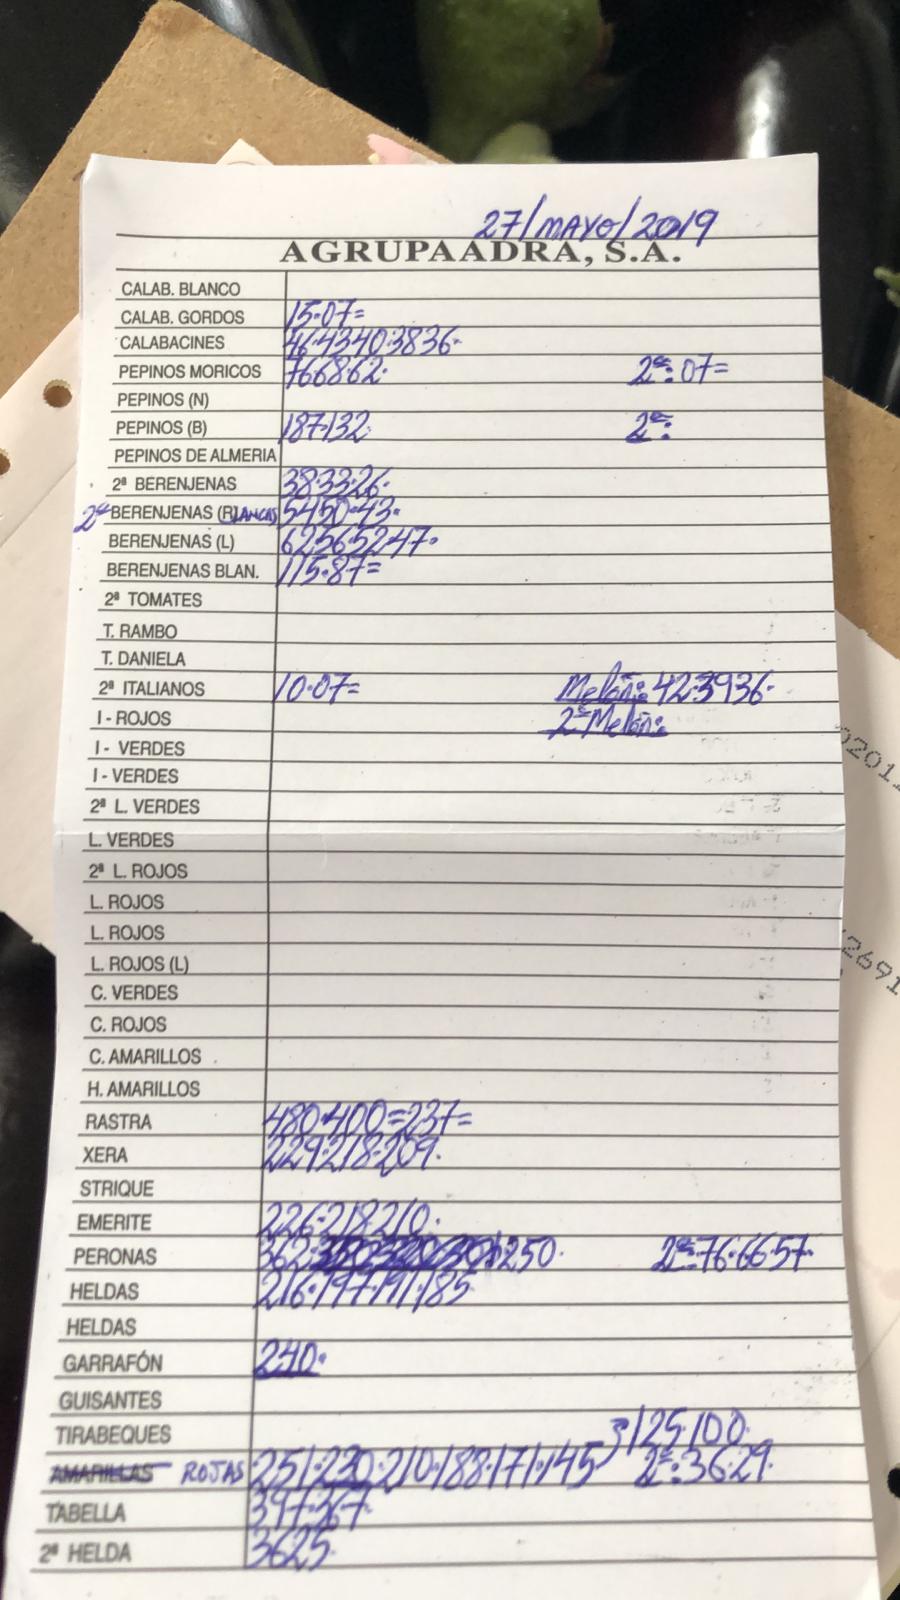 27/MAYO/2019
AGRUPAADRA, S.A.
CALAB. BLANCO
CALAB. GORDOS 15·07=
CALABACINES 46·43·40·38·36·
PEPINOS MORICOS 76·68·62· 2ª: 07=
PEPINOS (N)
PEPINOS (B) 187·132· 2ª:
PEPINOS DE ALMERIA
2ª BERENJENAS 38·33·26·
2ª BERENJENAS (BLANCAS 54·50·43·
BERENJENAS (L) 62·56·52·47·
BERENJENAS BLAN. 115·87=
2ª TOMATES
T. RAMBO
T. DANIELA
2ª ITALIANOS 10·07= Melón: 42·39·36·
I - ROJOS 2ª Melón:
I - VERDES
I - VERDES
2ª L. VERDES
L. VERDES
2ª L. ROJOS
L. ROJOS
L. ROJOS
L. ROJOS (L)
C. VERDES
C. ROJOS
C. AMARILLOS
H. AMARILLOS
RASTRA 480·400=237=
XERA 229·218·209·
STRIQUE
EMERITE 226·218·210·
PERONAS 362· 250· 2ª:76·66·57·
HELDAS 216·197·191·185
HELDAS
GARRAFÓN 240·
GUISANTES
TIRABEQUES 125·100·
AMARILLAS ROJAS 251·230·210·188·171·145 2ª:36·29·
TABELLA 397·367·
2ª HELDA 36·25·